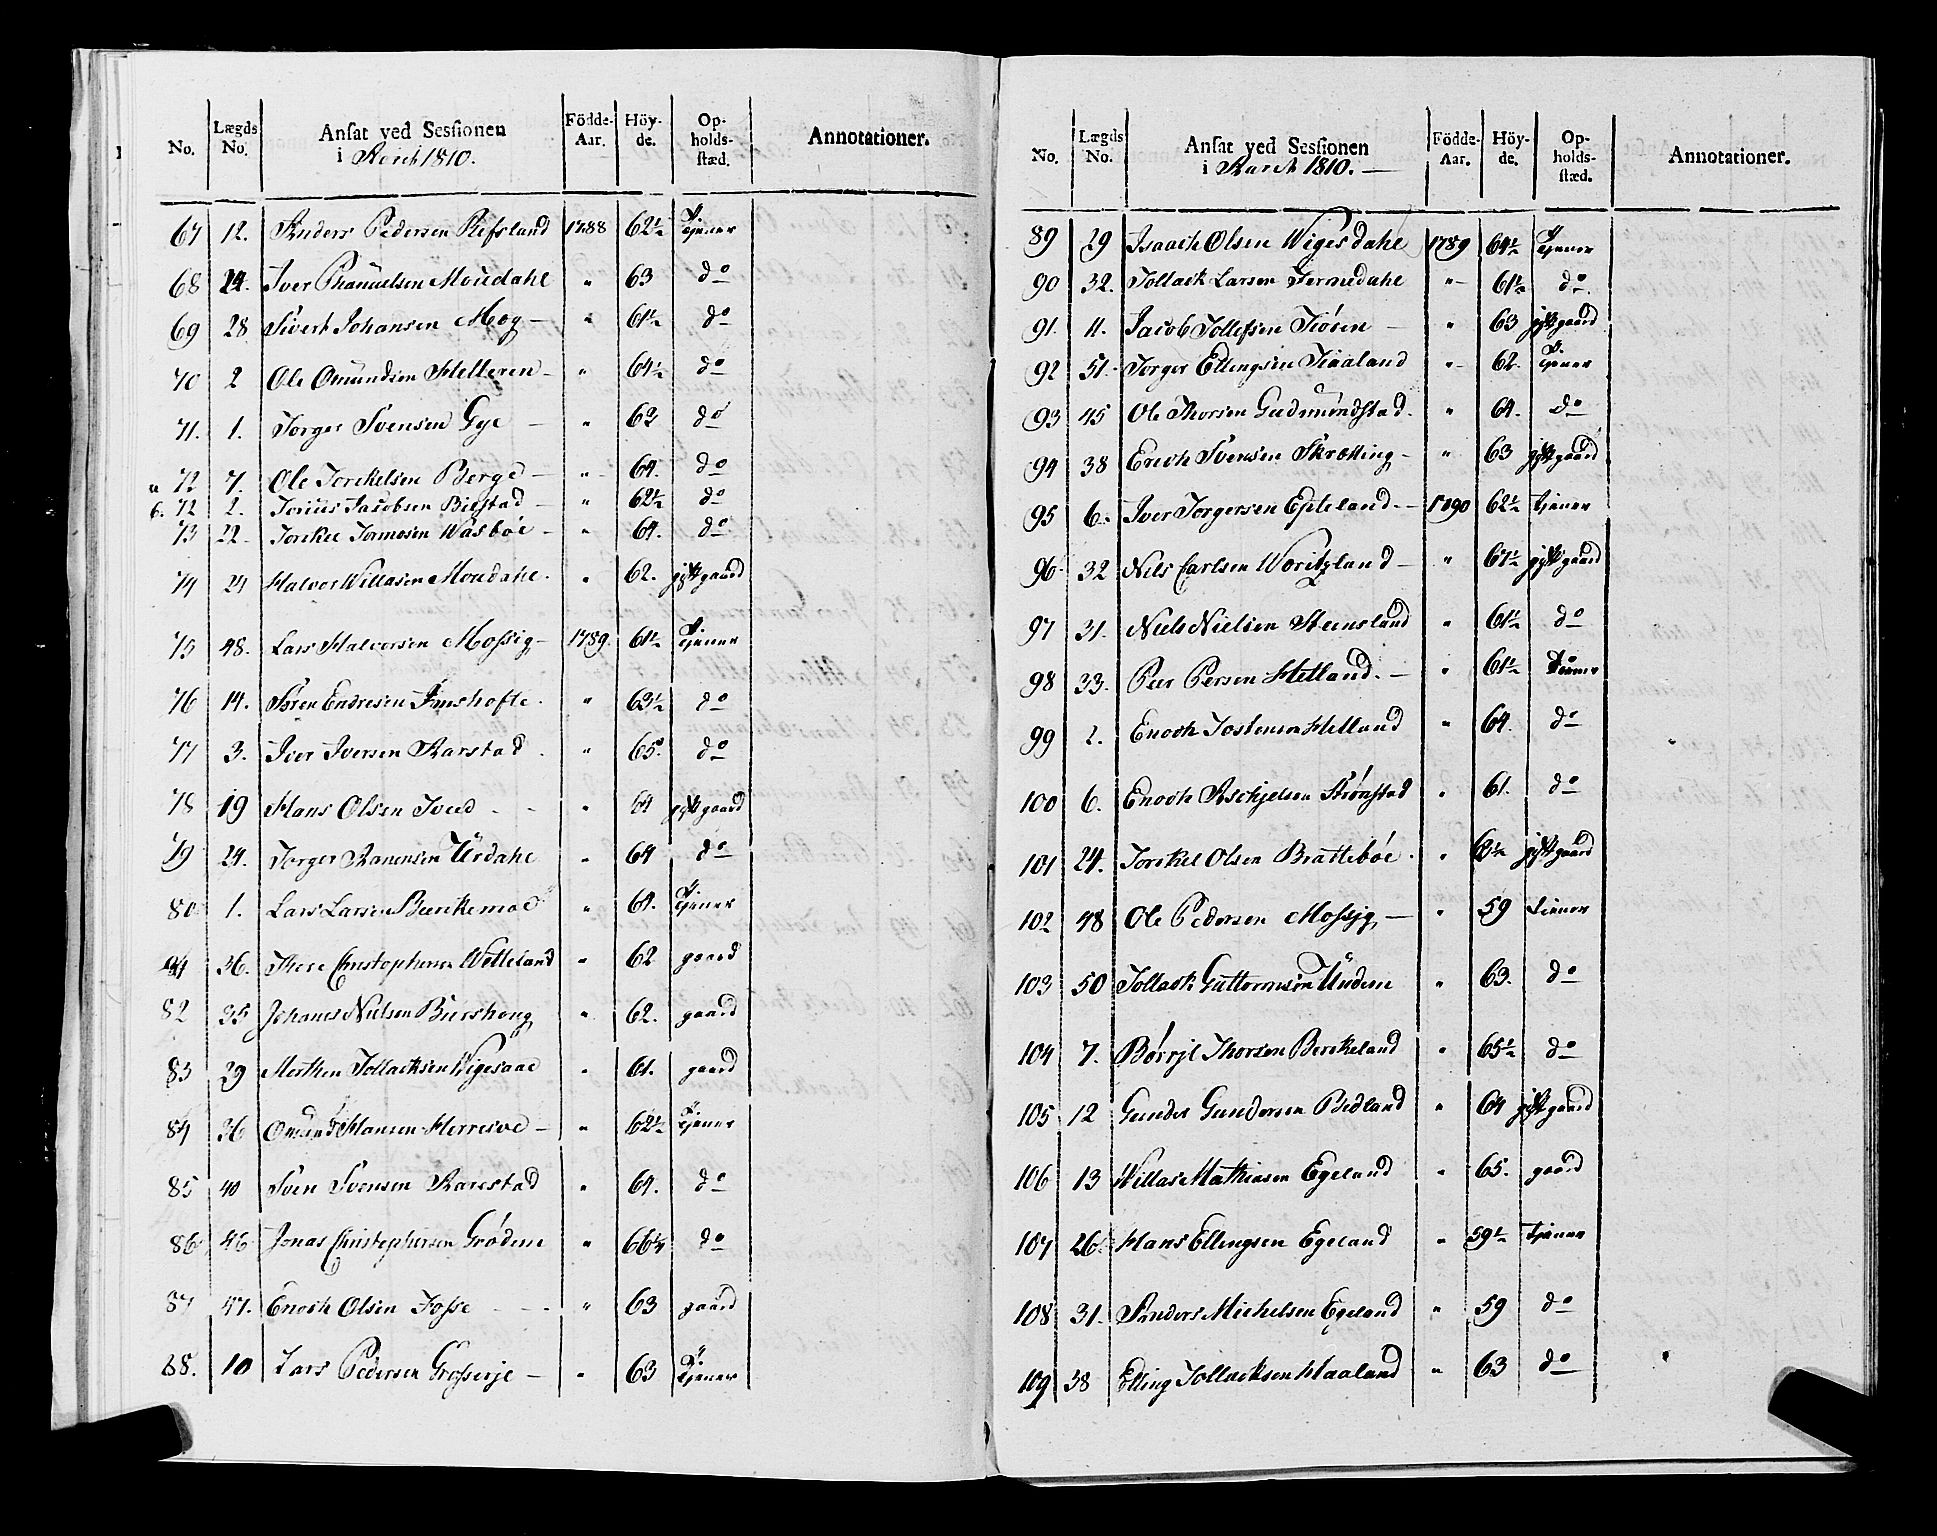 No. Lægds No. Ansat ved Sessionen i March 1810. Födde-Aar. Höy-de. Op-holds-stæd. Annotationer.
67 12. Anders Pedersen Refsland 1788 62½ Tjener
68 24. Iver Samuelsen Moudahl " 63 do
69 28 Sivert Johansen Mog - " 61½ do
70 2 Ole Omundsen Helleren - " 64½ do
71. 1. Torger Svensen Gye - " 63 do
a 72 7. Ole Torkelsen Berge - " 64. do
b. 72 2. Jacobsen Biestad - " 62½ do
73 22 Torkel Tormosen Wasbøe - " 64. do
74 24 Halvor Willasen Moudahl. " 62. gift gaard
75 48. Lars Halversen Mossig - 1789. 61½ Tjener
76 14. Søren Endresen Imshofte. " 63½ do
77 3. Iver Iversen Rarstad. " 65. do
78 19 Hans Olsen Tved - - " 64 gift gaard
79 24. Torger Urdahl " 64 do
80 1. Lars Larsen Birkemoe " 64. Tjener
81 36. Thore Christophersen Wetteland " 62 gaard
82 35 Johanes Nielsen Biershoug " 62. gaard
83 29 Morthen Tollacksen Wigesaae " 61. gaard
84 36 Omund Hansen Herresoe - " 62½ Tjener
85 40 Sven Svensen Rarestad " 64. do
86 46 Jonas Christophersen Grødem " 66¼ do
87 47. Enoch Olsen Fosse - - - " 63 gaard
88. 10 Lars Pedersen Grosserje - " 63 Tjener
No. Lægds No. Ansat ved Sessionen i March 1810. - Födde-Aar. Höy-de. Op-holds-stæd. Annotationer.
89 29 Isaach Olsen Wigesdahl 1789 64½ Tjener
90 32. Tollack Larsen " 61½ do
91. 11. Jacob Tollefsen Tiøsen - " 63 gift gaard
92 51. Torger Ellingsen Tiaaland " 62. Tjener
93 45 Ole Thorsen Gudmundstad. " 64. do
94 38 Erich Svensen Skretting - " 63 gift gaard
95 6. Iver Torgersen Epleland. - 1790 62½ Tjener
96 32 Nils Carlsen - " 67½ gift gaard
97 31. Niels Nielsen Steensland " 61½ do
98 33. Peer Persen Hetland. - " 61½ Tiener
99 2. Enoch Jostensen Helland " 64. do
100 6. Enoch Aschjelsen " 61. do
101 24. Torkel Olsen Brattebøe. " gift gaard
102 48 Ole Pedersen Mossig - " 59 Tiener
103 50 Tollach Guttormsen Undem " 63. do
104 7. Børrje Thorsen Berkeland " 65½ do
105 12 Gunder Gundersen Bedland " 64 gift gaard
106 13 Willas Mathiasen Egeland " 65. gaard
107 26. Hans Ellingsen Egeland " 59½ Tjener
108 31. Anders Michelsen Egeland " 59 do
109 38 Elling Tollacksen Haaland " 63 do